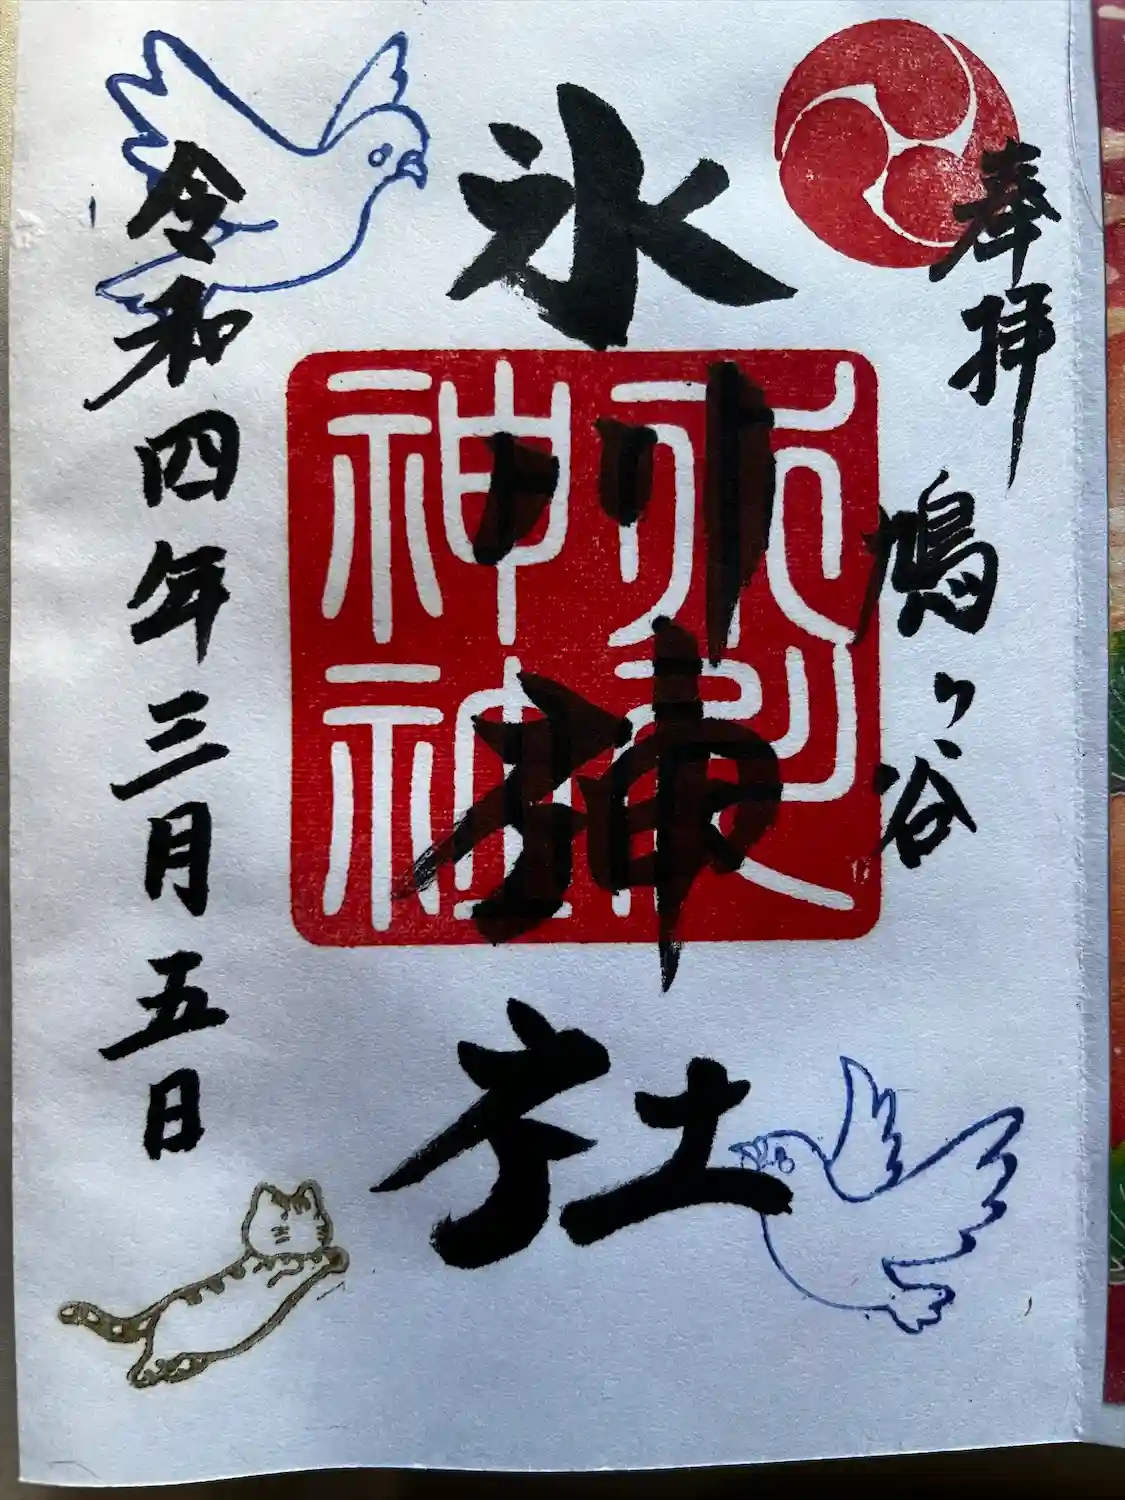 奉拝
鳩ヶ谷
氷川神社
令和四年三月五日